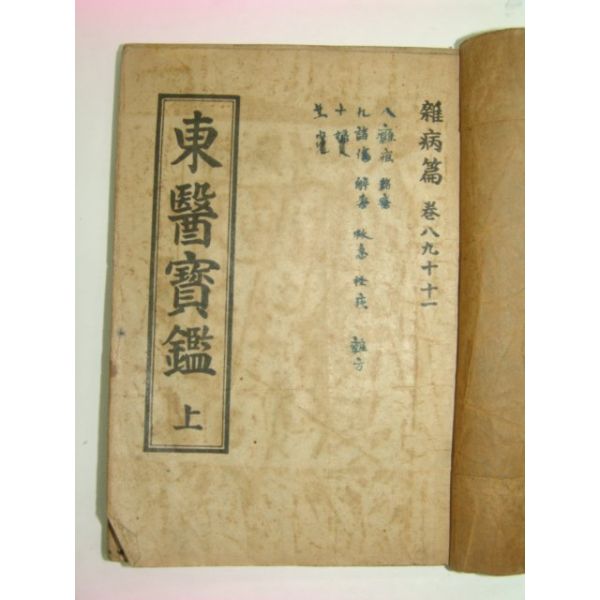 雜病篇 卷八九十十一
八 雜疽 諸瘡
九 諸傷 解毒 救急 怪疾 雜方
十 婦人
十一 小兒
東醫寶鑑 上